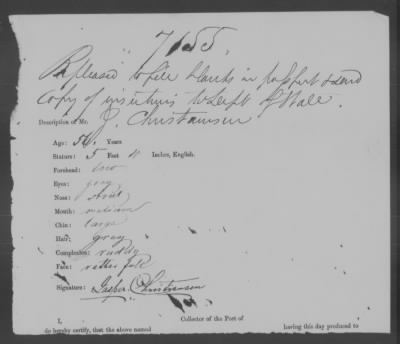 7155.
Be pleased to fill blanks in passport & send
copy of insertions to Dept of State.
Description of Mr. J. Christensen
Age: 54. Years
Stature: 5 Feet 4 Inches, English.
Forehead: low
Eyes: gray
Nose: stout
Mouth: medium
Chin: large
Hair: gray
Complexion: ruddy
Face: rather full
Signature: Jasper Christensen
I, Collector of the Port of
do hereby certify, that the above named having this day produced to